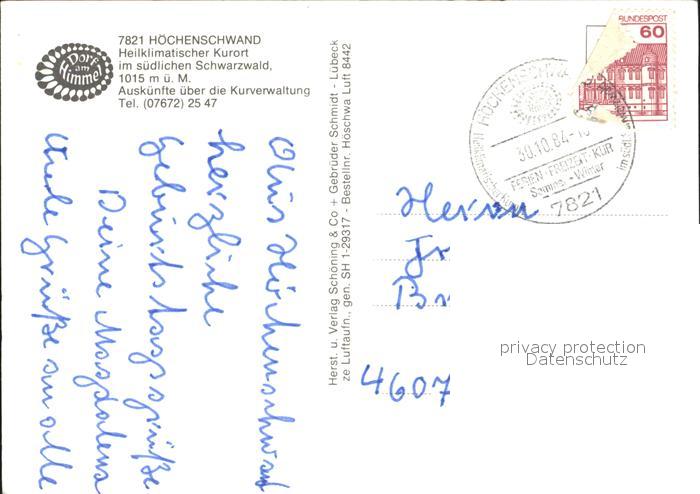 7821 HÖCHENSCHWAND
Heilklimatischer Kurort
im südlichen Schwarzwald,
1015 m ü. M.
Auskünfte über die Kurverwaltung
Tel. (07672) 25 47
Dorf
am
Himmel
Aus Höchenschwand
herzliche
Geburtstagsgrüße
Deine Magdalena
Viele Grüße an alle
Herst. u. Verlag Schöning & Co + Gebrüder Schmidt - Lübeck
ze Luftaufn., gen. SH 1-29317 - Bestellnr. Höschwa Luft 8442
BUNDESPOST
60
HÖCHENSCHWA
30.10.84-1
FERIEN-FREIZEIT-KUR
Sommer - Winter
7821
im südl.
Herrn
Fr
Br
4607
privacy protection
Datenschutz